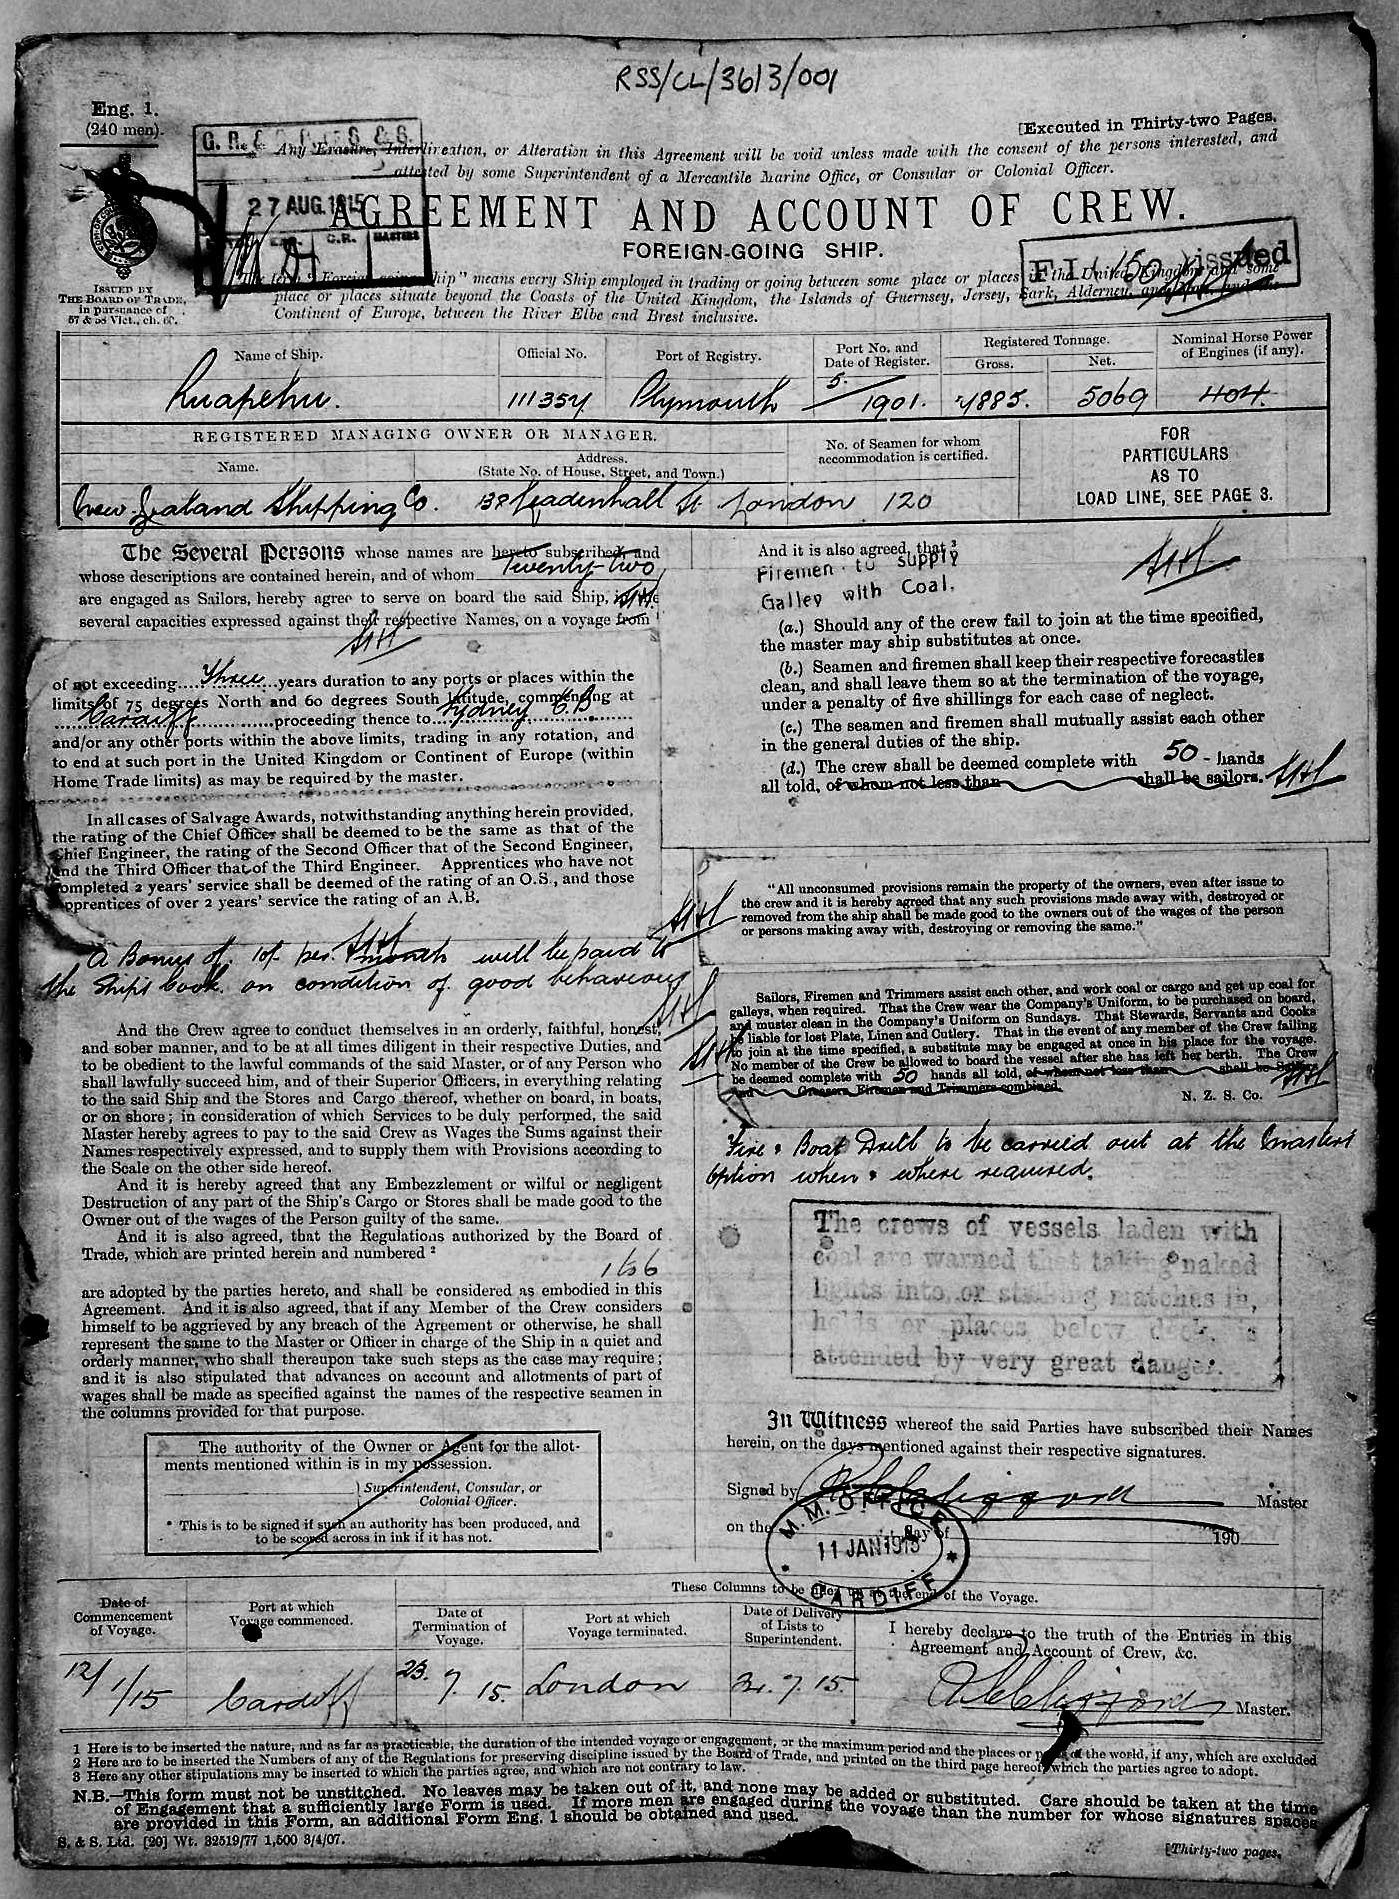 RSS/CL/3613/001
Eng. 1.
(240 men).
[Executed in Thirty-two Pages.
Any Erasure, Interlineation, or Alteration in this Agreement will be void unless made with the consent of the persons interested, and
attested by some Superintendent of a Mercantile Marine Office, or Consular or Colonial Officer.
27 AUG. 1915
C.R. MASTERS
AGREEMENT AND ACCOUNT OF CREW.
FOREIGN-GOING SHIP.
issued
The term "Foreign-going Ship" means every Ship employed in trading or going between some place or places in the United Kingdom and some
place or places situate beyond the Coasts of the United Kingdom, the Islands of Guernsey, Jersey, Sark, Alderney, and
Continent of Europe, between the River Elbe and Brest inclusive.
ISSUED BY
THE BOARD OF TRADE,
in pursuance of
57 & 58 Vict., ch. 60.
Name of Ship.
Official No.
Port of Registry.
Port No. and
Date of Register.
Registered Tonnage.
Gross.
Net.
Nominal Horse Power
of Engines (if any).
Ruapehu. 111357 Plymouth 5/1901. 7885. 5069 404.
REGISTERED MANAGING OWNER OR MANAGER.
Name.
Address.
(State No. of House, Street, and Town.)
No. of Seamen for whom
accommodation is certified.
FOR
PARTICULARS
AS TO
LOAD LINE, SEE PAGE 3.
New Zealand Shipping Co. 138 Leadenhall St London 120
The Several Persons whose names are hereto subscribed, and
whose descriptions are contained herein, and of whom Twenty-two
are engaged as Sailors, hereby agree to serve on board the said Ship, in the
several capacities expressed against their respective Names, on a voyage from 1
of not exceeding Three years duration to any ports or places within the
limits of 75 degrees North and 60 degrees South latitude, commencing at
Cardiff proceeding thence to Sydney C.B
and/or any other ports within the above limits, trading in any rotation, and
to end at such port in the United Kingdom or Continent of Europe (within
Home Trade limits) as may be required by the master.
In all cases of Salvage Awards, notwithstanding anything herein provided,
the rating of the Chief Officer shall be deemed to be the same as that of the
Chief Engineer, the rating of the Second Officer that of the Second Engineer,
and the Third Officer that of the Third Engineer. Apprentices who have not
completed 2 years' service shall be deemed of the rating of an O.S., and those
apprentices of over 2 years' service the rating of an A.B.
A Bonus of 10/ per month will be paid to
the Ship's Cook on condition of good behaviour
And the Crew agree to conduct themselves in an orderly, faithful, honest,
and sober manner, and to be at all times diligent in their respective Duties, and
to be obedient to the lawful commands of the said Master, or of any Person who
shall lawfully succeed him, and of their Superior Officers, in everything relating
to the said Ship and the Stores and Cargo thereof, whether on board, in boats,
or on shore; in consideration of which Services to be duly performed, the said
Master hereby agrees to pay to the said Crew as Wages the Sums against their
Names respectively expressed, and to supply them with Provisions according to
the Scale on the other side hereof.
And it is hereby agreed that any Embezzlement or wilful or negligent
Destruction of any part of the Ship's Cargo or Stores shall be made good to the
Owner out of the wages of the Person guilty of the same.
And it is also agreed, that the Regulations authorized by the Board of
Trade, which are printed herein and numbered 2
1 to 6
are adopted by the parties hereto, and shall be considered as embodied in this
Agreement. And it is also agreed, that if any Member of the Crew considers
himself to be aggrieved by any breach of the Agreement or otherwise, he shall
represent the same to the Master or Officer in charge of the Ship in a quiet and
orderly manner, who shall thereupon take such steps as the case may require;
and it is also stipulated that advances on account and allotments of part of
wages shall be made as specified against the names of the respective seamen in
the columns provided for that purpose.
The authority of the Owner or Agent for the allot-
ments mentioned within is in my possession.
Superintendent, Consular, or
Colonial Officer.
* This is to be signed if such an authority has been produced, and
to be scored across in ink if it has not.
And it is also agreed, that 3
Firemen to supply
Galley with Coal.
(a.) Should any of the crew fail to join at the time specified,
the master may ship substitutes at once.
(b.) Seamen and firemen shall keep their respective forecastles
clean, and shall leave them so at the termination of the voyage,
under a penalty of five shillings for each case of neglect.
(c.) The seamen and firemen shall mutually assist each other
in the general duties of the ship.
(d.) The crew shall be deemed complete with 50 - hands
all told, of whom not less than shall be sailors.
"All unconsumed provisions remain the property of the owners, even after issue to
the crew and it is hereby agreed that any such provisions made away with, destroyed or
removed from the ship shall be made good to the owners out of the wages of the person
or persons making away with, destroying or removing the same."
Sailors, Firemen and Trimmers assist each other, and work coal or cargo and get up coal for
galleys, when required. That the Crew wear the Company's Uniform, to be purchased on board,
and muster clean in the Company's Uniform on Sundays. That Stewards, Servants and Cooks
be liable for lost Plate, Linen and Cutlery. That in the event of any member of the Crew failing
to join at the time specified, a substitute may be engaged at once in his place for the voyage.
No member of the Crew be allowed to board the vessel after she has left her berth. The Crew
be deemed complete with 50 hands all told, of whom not less than shall be Sailors
and Greasers, Firemen and Trimmers combined.
N. Z. S. Co.
Fire & Boat Drill to be carried out at the Masters
option when & where required.
The crews of vessels laden with
coal are warned that taking naked
lights into, or striking matches in,
holds or places below deck, is
attended by very great danger.
In Witness whereof the said Parties have subscribed their Names
herein, on the days mentioned against their respective signatures.
Signed by Master
on the day of 190
M. M. OFFICE
11 JAN 1915
CARDIFF
These Columns to be filled up at the end of the Voyage.
Date of
Commencement
of Voyage.
Port at which
Voyage commenced.
Date of
Termination of
Voyage.
Port at which
Voyage terminated.
Date of Delivery
of Lists to
Superintendent.
I hereby declare to the truth of the Entries in this
Agreement and Account of Crew, &c.
12/1/15 Cardiff 23. 7. 15. London 7. 15.
Master.
1 Here is to be inserted the nature, and as far as practicable, the duration of the intended voyage or engagement, or the maximum period and the places or parts of the world, if any, which are excluded
2 Here are to be inserted the Numbers of any of the Regulations for preserving discipline issued by the Board of Trade, and printed on the third page hereof, which the parties agree to adopt.
3 Here any other stipulations may be inserted to which the parties agree, and which are not contrary to law.
N.B.—This form must not be unstitched. No leaves may be taken out of it, and none may be added or substituted. Care should be taken at the time
of Engagement that a sufficiently large Form is used. If more men are engaged during the voyage than the number for whose signatures spaces
are provided in this Form, an additional Form Eng. 1 should be obtained and used.
S. & S. Ltd. [20] Wt. 32519/77 1,500 3/4/07.
[Thirty-two pages.